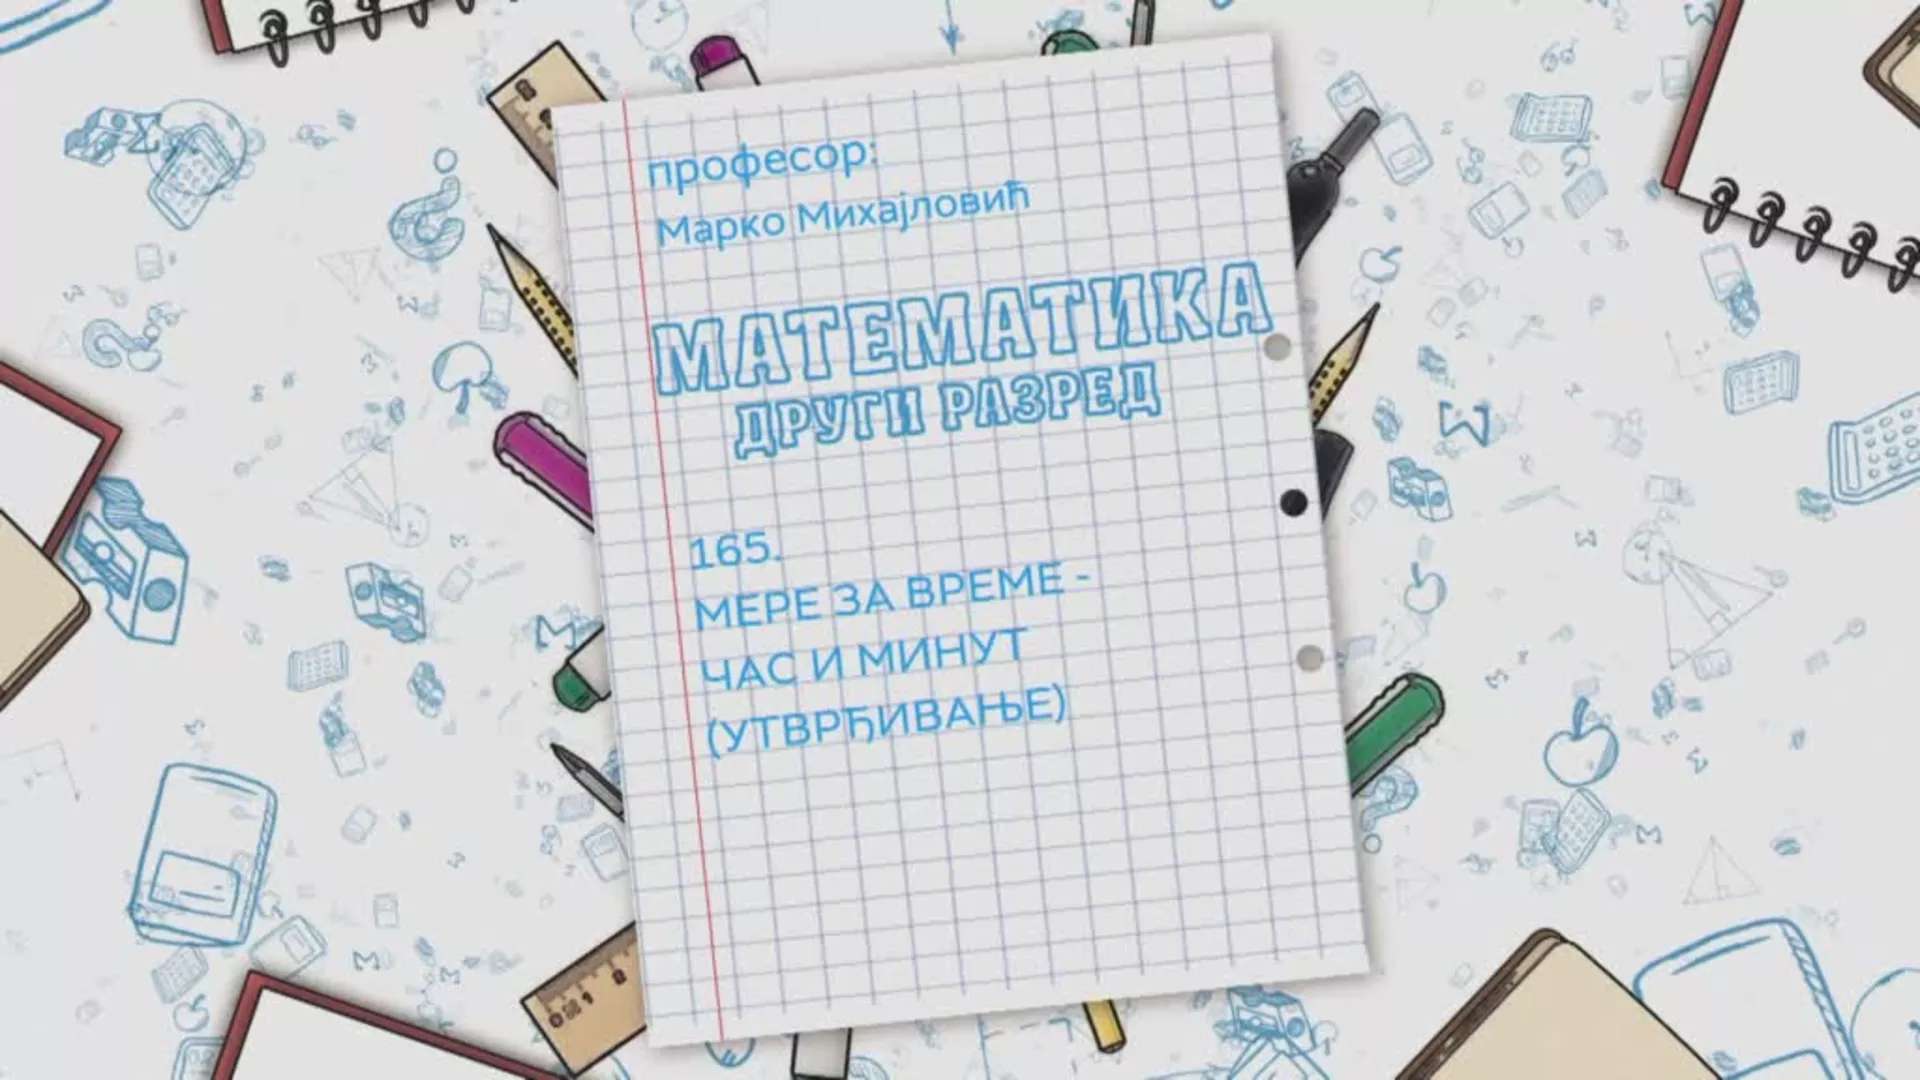 професор:
Марко Михајловић
МАТЕМАТИКА
ДРУГИ РАЗРЕД
165.
МЕРЕ ЗА ВРЕМЕ -
ЧАС И МИНУТ
(УТВРЂИВАЊЕ)